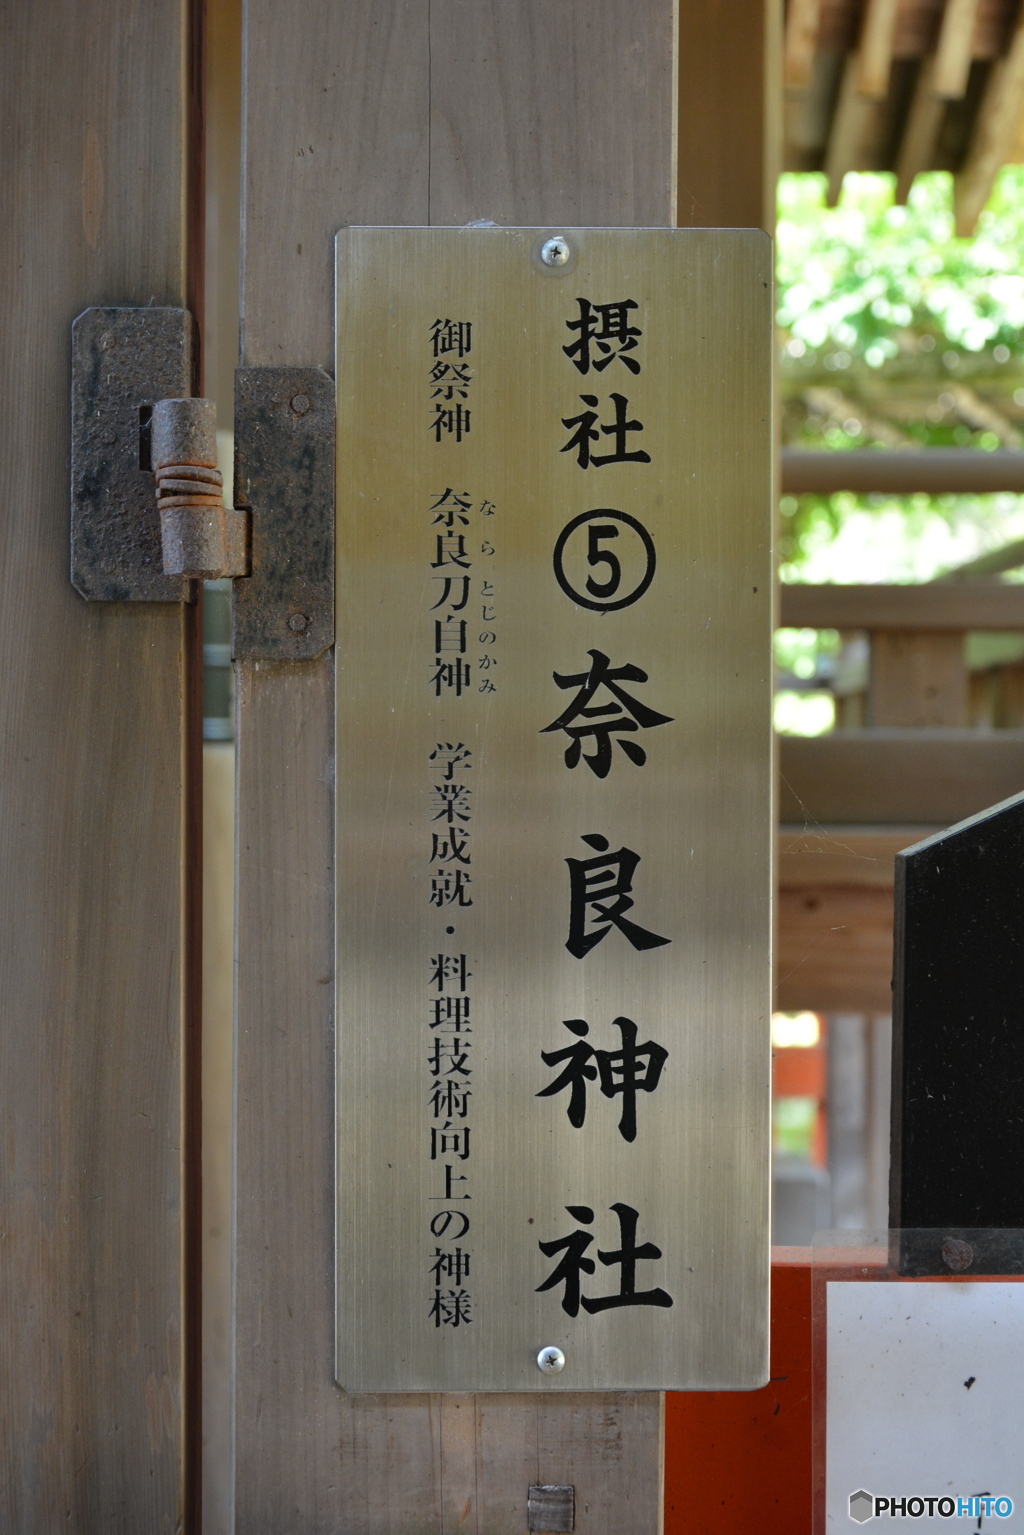 摂社⑤奈良神社
御祭神 奈良刀自神 学業成就・料理技術向上の神様
なら とじのかみ
PHOTOHITO